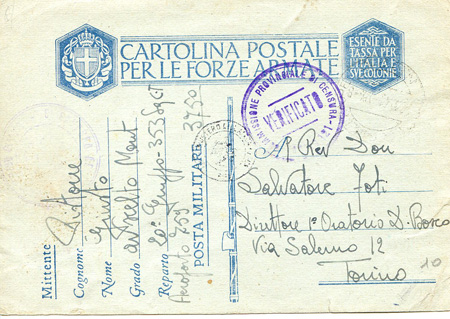 CARTOLINA POSTALE
PER LE FORZE ARMATE
ESENTE DA
TASSA PER
L'ITALIA E
SVE COLONIE
COMMISSIONE PROVINCIALE DI CENSURA
VERIFICATO
Al Rev Don
Salvatore Foti
Direttore 1° Oratorio D. Bosco
Via Salerno 12
Torino
10
Mittente
Cognome
Nome Giusto
Grado
Reparto 20° Gruppo 353
Aeroporto
POSTA MILITARE 3750